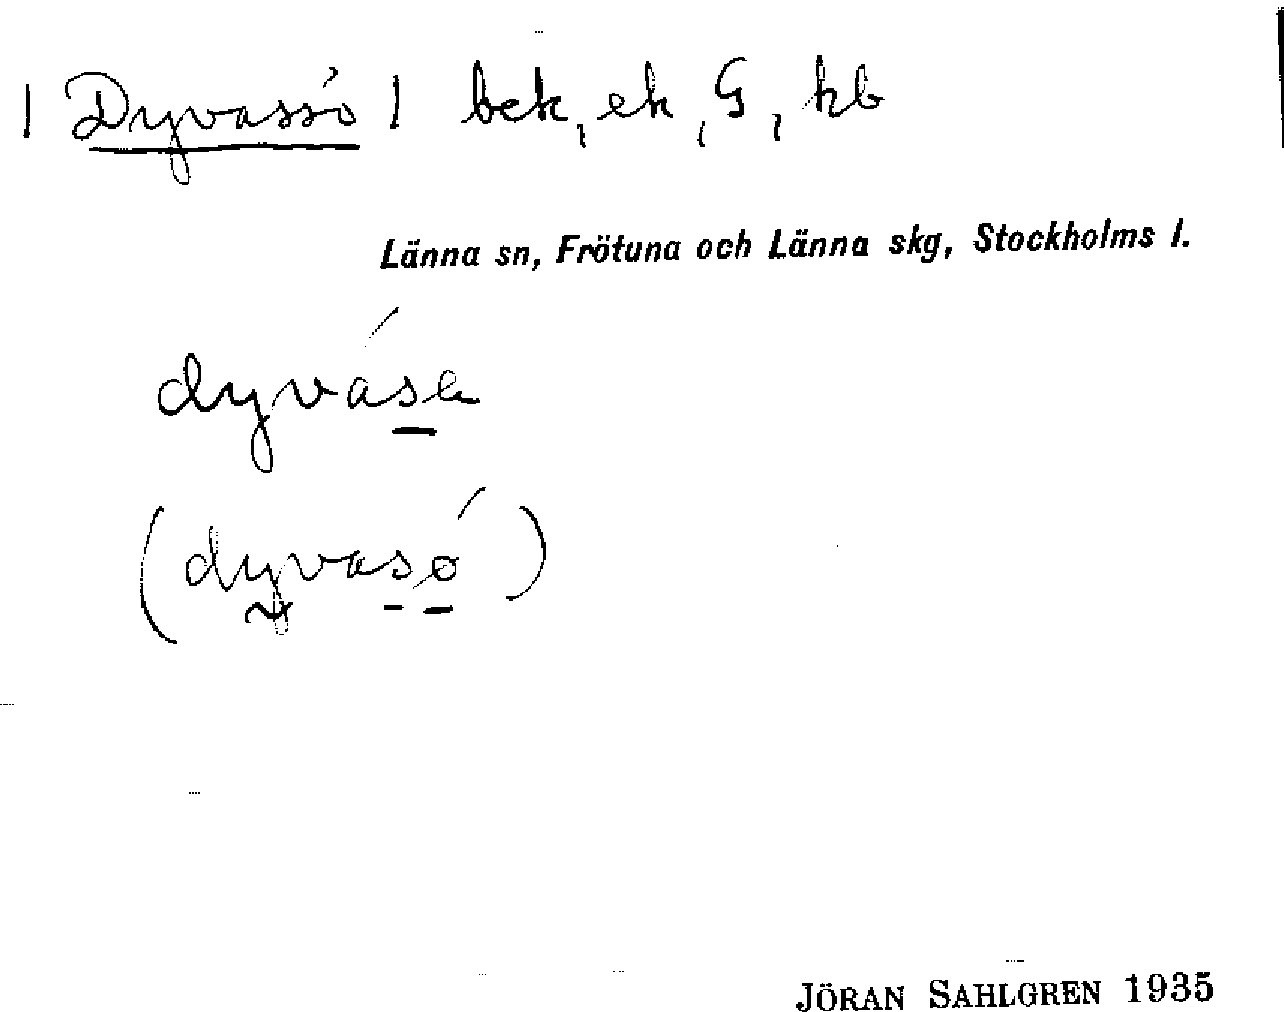 | Dyvassö | bek, ek, G, kb
Länna sn, Frötuna och Länna skg, Stockholms l.
dyvása
(dyvasó)
JÖRAN SAHLGREN 1935